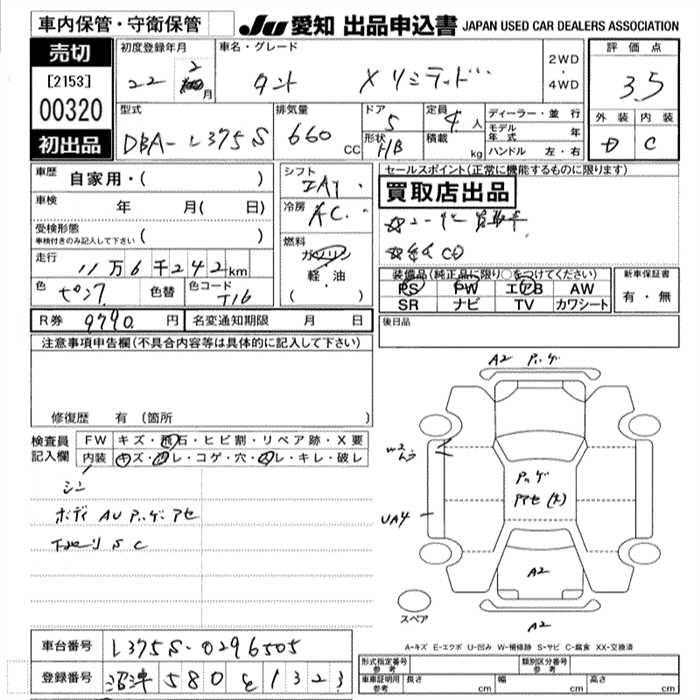 車内保管・守衛保管
JU 愛知 出品申込書 JAPAN USED CAR DEALERS ASSOCIATION
売切
[2153]
00320
初出品
初度登録年月
22 2 月
車名・グレード
タント Xリミテッド
2WD
・
4WD
評価点
3.5
外装 内装
D C
型式
DBA-L375S
排気量
660 cc
ドア
5
形状
H/B
定員
4 人
積載
kg
ディーラー・並行
モデル年式 年
ハンドル 左・右
車歴
自家用・( )
車検
年 月( 日)
受検形態
車検付きのみ記入して下さい ( )
走行
11万6千242km
色
ピンク
色替
色コード
T16
R券 9790 円
名変通知期限 月 日
シフト
IAT
冷房
AC
燃料
ガソリン
・
軽油
( ・ )
セールスポイント(正常に機能するものに限ります)
買取店出品
☆ユーザー買取車
CD
装備品(純正品に限り○をつけてください)
PS PW エアB AW
SR ナビ TV カワシート
新車保証書
有・無
後日品
注意事項申告欄(不具合内容等は具体的に記入して下さい)
修復歴 有 〔箇所 〕
検査員記入欄
FW キズ・飛石・ヒビ割・リペア跡・X要
内装 キズ・汚レ・コゲ・穴・スレ・キレ・破レ
シン
ボディ AU ハゲ アセ
下廻り S C
A2 ハゲ
W2
UA4
ハゲ
アセ(大)
A2
A2
スペア
A-キズ E-エクボ U-凹み W-補修跡 S-サビ C-腐食 XX-交換済
車台番号 L375S-0296505
登録番号 沼津 580 を 1323
形式指定番号 参考
類別区分番号 参考
車庫証明用 参考 長さ cm 幅 cm 高さ cm